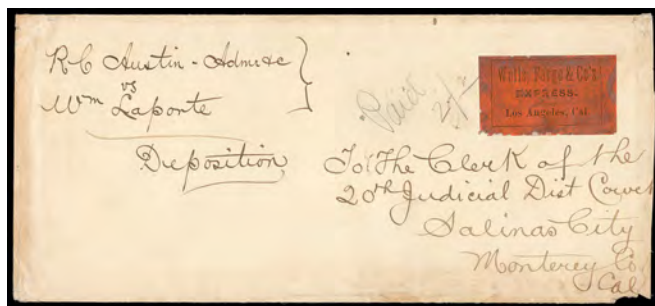 R C Austin - Admr &c
vs
Wm Laponte
Deposition
Paid
Wells, Fargo & Co's
EXPRESS.
Los Angeles, Cal
To The Clerk of the
20th Judicial Dist Court
Salinas City
Monterey Co.
Cal